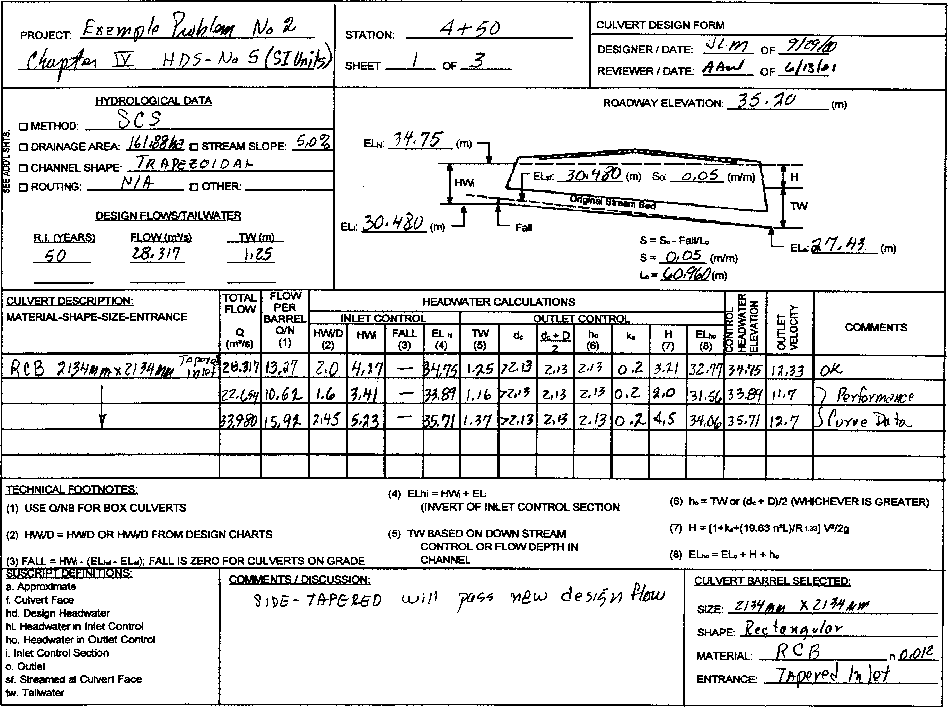 PROJECT: Example Problem No 2
Chapter IV HDS-No 5 (SI Units)
STATION: 4+50
SHEET 1 OF 3
CULVERT DESIGN FORM
DESIGNER / DATE: JLM OF 9/29/00
REVIEWER / DATE: OF 6/13/01
SEE ADD'L SHTS.
HYDROLOGICAL DATA
☐ METHOD: SCS
☐ DRAINAGE AREA: 161.88ha ☐ STREAM SLOPE: 5.0%
☐ CHANNEL SHAPE: TRAPEZOIDAL
☐ ROUTING: N/A ☐ OTHER:
DESIGN FLOWS/TAILWATER
R.I. (YEARS) FLOW (m³/s) TW (m)
50 28.317 1.25
ROADWAY ELEVATION: 35.20 (m)
ELhd: 34.75 (m)
HWi
ELsf: 30.480 (m) So: 0.05 (m/m)
H
Original Stream Bed
TW
ELi: 30.480 (m)
Fall
S = So - Fall/La
S = 0.05 (m/m)
La = 60.960 (m)
ELo: 27.43 (m)
CULVERT DESCRIPTION:
MATERIAL-SHAPE-SIZE-ENTRANCE
TOTAL FLOW Q (m³/s)
FLOW PER BARREL Q/N (1)
HEADWATER CALCULATIONS
INLET CONTROL OUTLET CONTROL
HWi/D (2) HWi FALL (3) ELhi (4) TW (5) dc dc + D/2 ho (6) ke H (7) ELho (8)
CONTROL HEADWATER ELEVATION
OUTLET VELOCITY
COMMENTS
RCB 2134mm x 2134mm Tapered Inlet 28.317 13.27 2.0 4.27 — 34.75 1.25 >2.13 2.13 2.13 0.2 3.21 32.77 34.75 12.33 OK
22.654 10.62 1.6 3.41 — 33.89 1.16 >2.13 2.13 2.13 0.2 2.0 31.56 33.89 11.7 Performance
33.980 15.92 2.45 5.23 — 35.71 1.37 >2.13 2.13 2.13 0.2 4.5 34.06 35.71 12.7 Curve Data
TECHNICAL FOOTNOTES:
(1) USE Q/NB FOR BOX CULVERTS
(2) HWi/D = HW/D OR HWi/D FROM DESIGN CHARTS
(3) FALL = HWi - (ELhd - ELsf); FALL IS ZERO FOR CULVERTS ON GRADE
(4) ELhi = HWi + ELi
(INVERT OF INLET CONTROL SECTION
(5) TW BASED ON DOWN STREAM
CONTROL OR FLOW DEPTH IN
CHANNEL
(6) ho = TW or (dc + D)/2 (WHICHEVER IS GREATER)
(7) H = [1+ke+(19.63 n²L)/R1.33] V²/2g
(8) ELho = ELo + H + ho
SUSCRIPT DEFINITIONS:
a. Approximate
f. Culvert Face
hd. Design Headwater
hi. Headwater in Inlet Control
ho. Headwater in Outlet Control
i. Inlet Control Section
o. Outlet
sf. Streamed at Culvert Face
tw. Tailwater
COMMENTS / DISCUSSION:
SIDE-TAPERED will pass new design flow
CULVERT BARREL SELECTED:
SIZE: 2134mm x 2134mm
SHAPE: Rectangular
MATERIAL: RCB n 0.012
ENTRANCE: Tapered Inlet